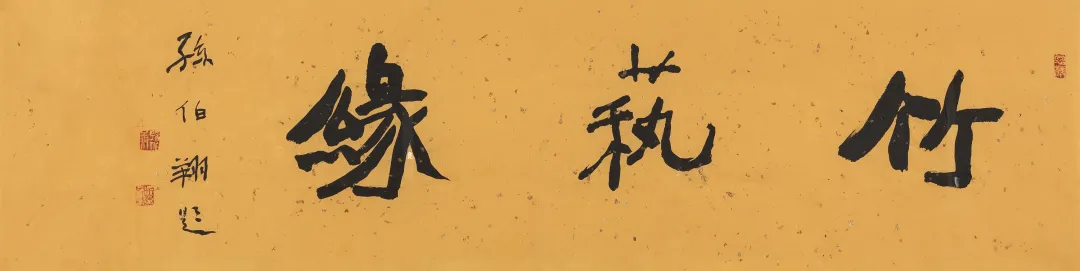 竹蓺緣
孫伯翔題